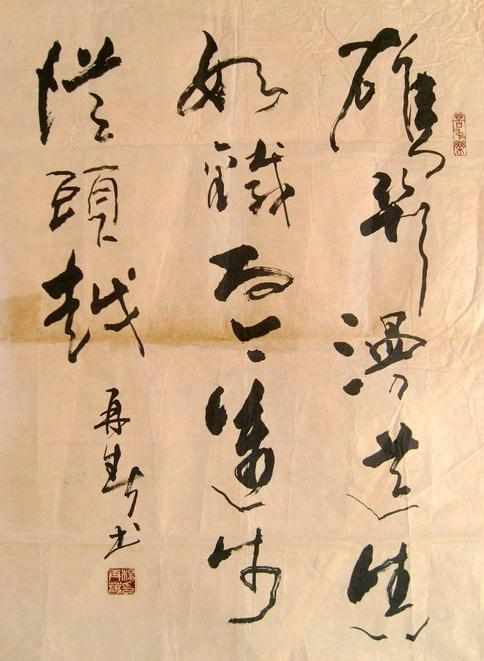 雄關漫道真
如鐵而今邁步
從頭越
再书